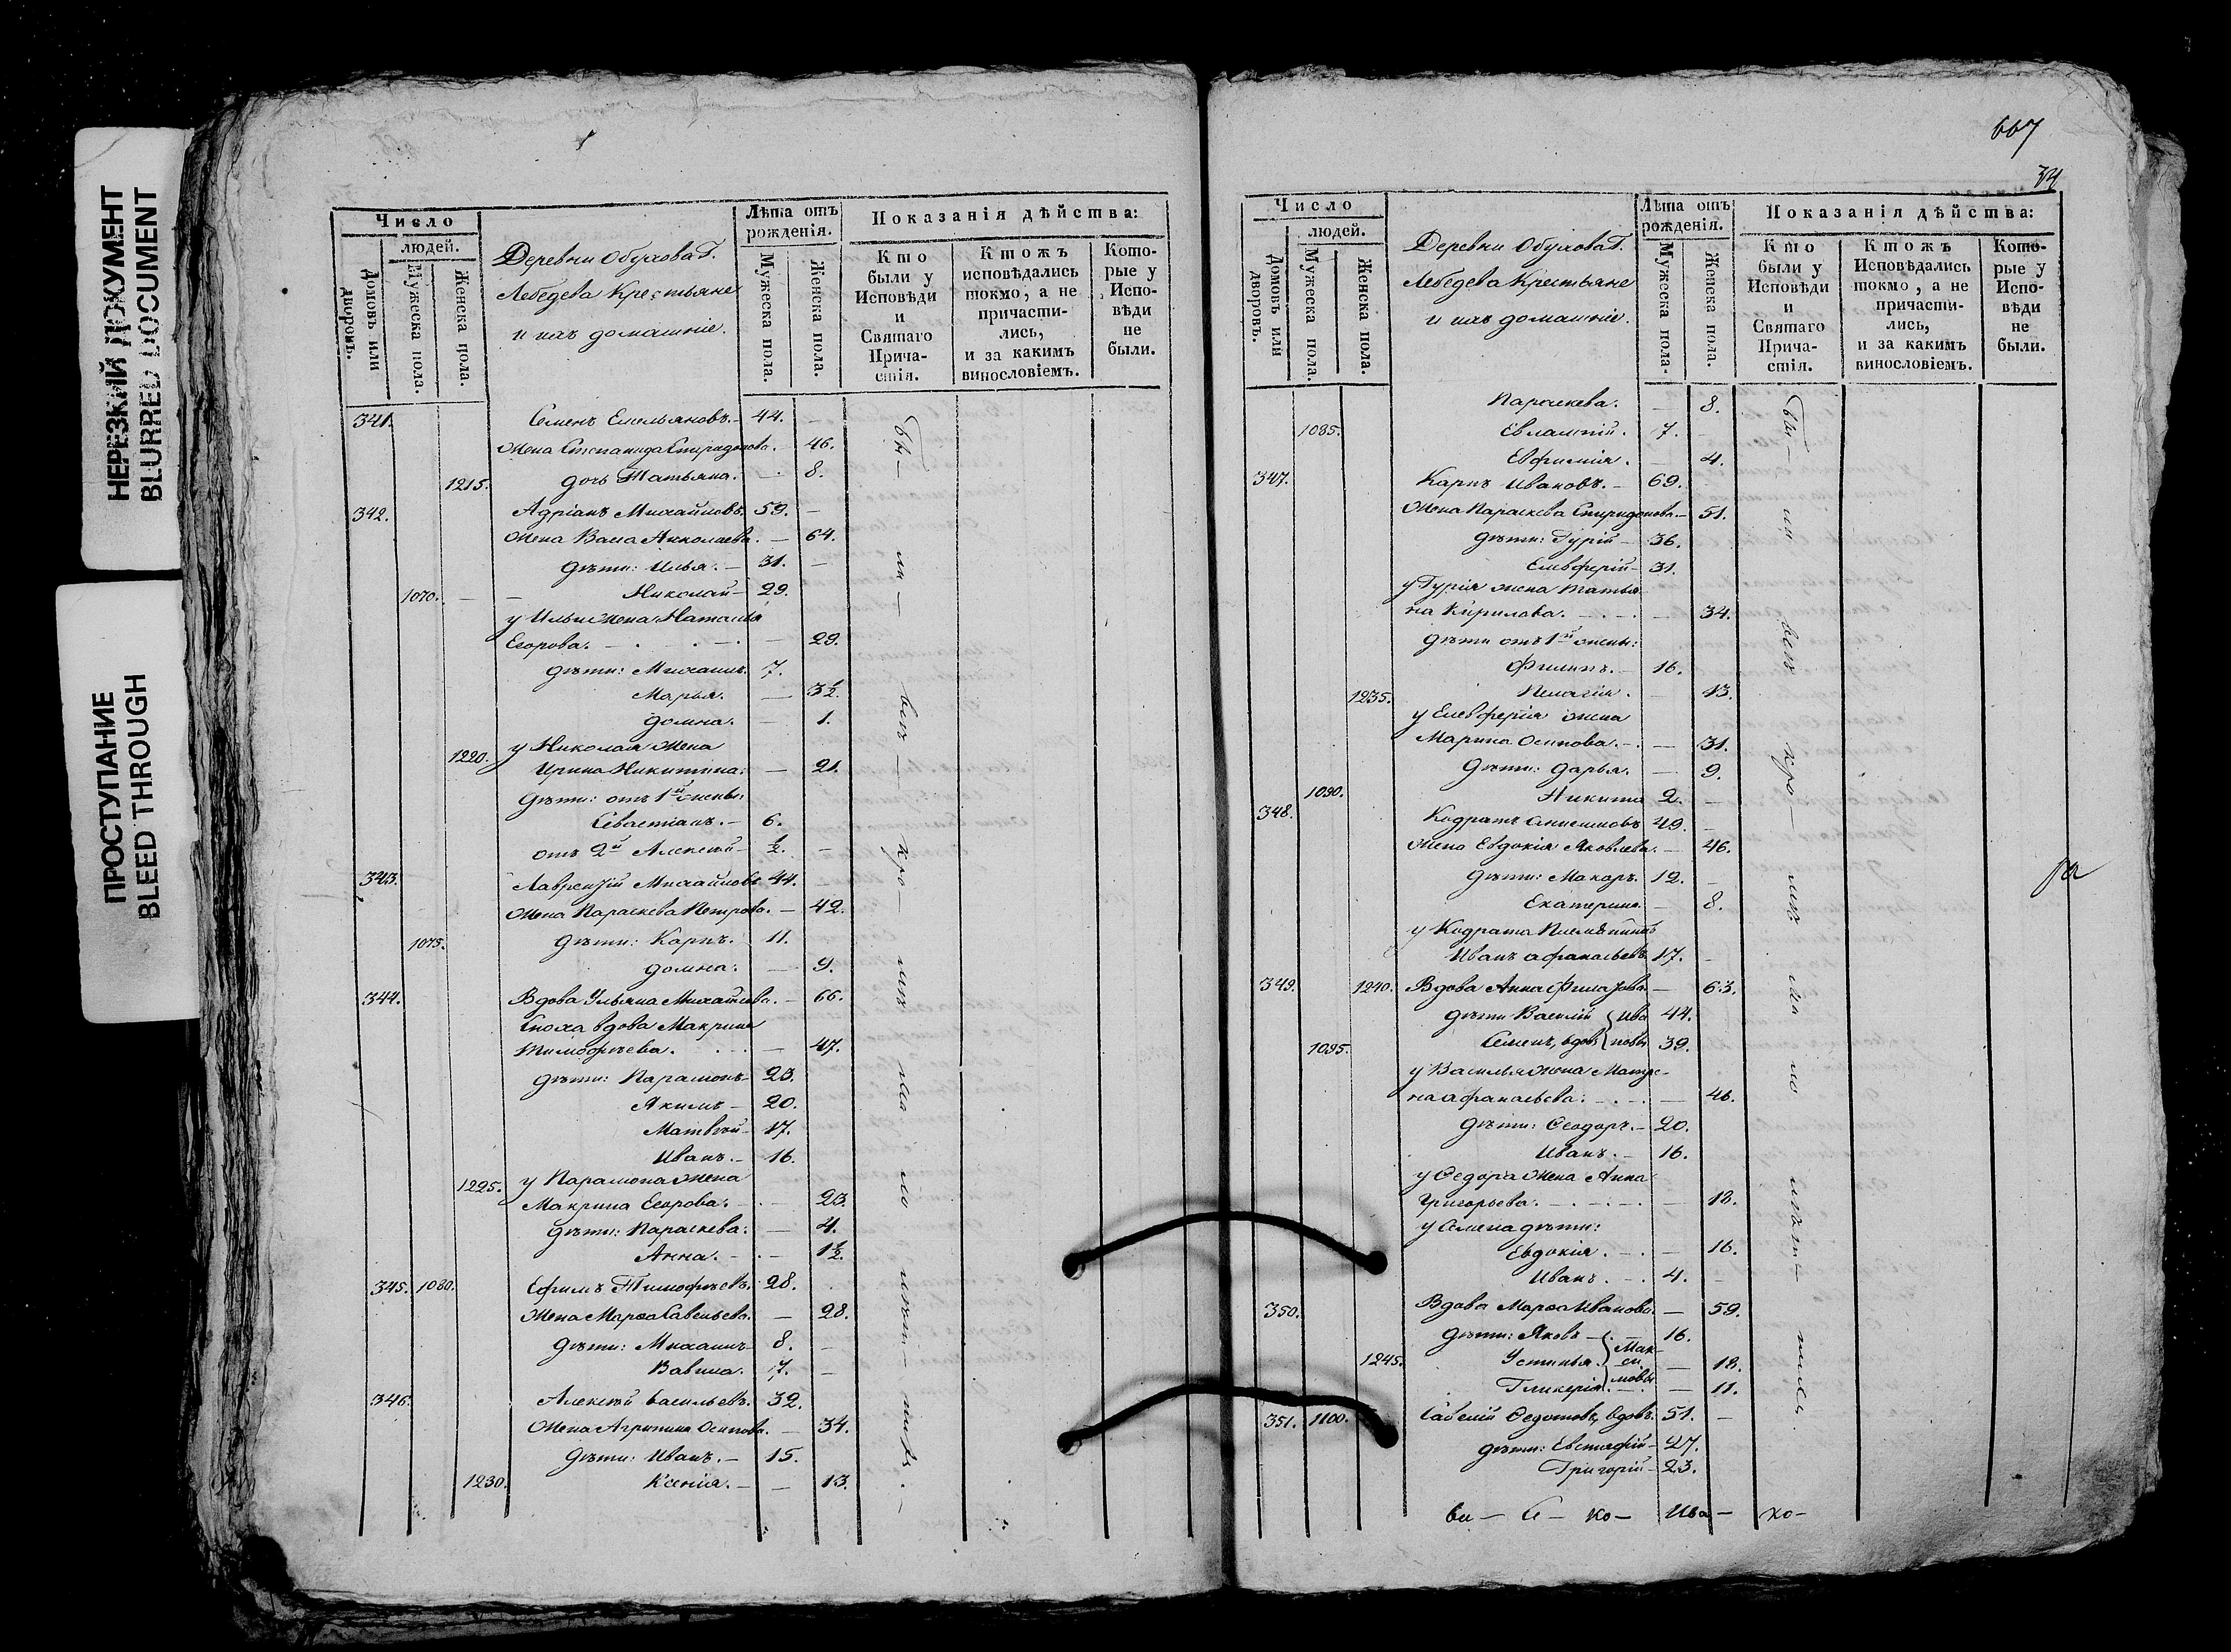 НЕРЕЗКИЙ ДОКУМЕНТ
BLURRED DOCUMENT
ПРОСТУПАНИЕ
BLEED THROUGH
Число
людей.
Домовъ или дворовъ.
Мужеска пола.
Женска пола.
Деревни Обухова Г.
Лебедева Крестьяне
и ихъ домашніе.
Лѣта отъ рожденія.
Мужеска пола.
Женска пола.
Показанія дѣйства:
Кто были у Исповѣди и Святаго Прича- стія.
Ктожъ исповѣдались токмо, а не причасти- лись, и за какимъ винословіемъ.
Кото- рые у Испо- вѣди не были.
341. Семенъ Емельяновъ. 44.
Жена Степанида Спиридонова. 46.
1215. дочь Татьяна. 8.
342. Адріанъ Михайловъ. 59.
Жена Васса Николаева. 64.
дѣти: Илья. 31.
1070. Николай 29.
у Ильи жена Наталья
Егорова. 29.
дѣти: Михаилъ. 7.
Марья. 3½.
домна. 1.
1220. у Николая жена
Ирина Никитина: 21.
дѣти: отъ 1й жены:
Севастіанъ. 6.
отъ 2й Алексѣй ½.
343. Лаврентій Михайловъ 44.
Жена Параскева Петрова. 42.
1075. дѣти: Карпъ. 11.
домна. 9.
344. Вдова Ульяна Михайлова. 66.
Сноха вдова Макрина
Тимофѣева. 47.
дѣти: Парамонъ 23.
Якимъ 20.
Матвѣй 17.
Иванъ. 16.
1225. у Парамона жена
Макрина Егорова. 23.
дѣти: Параскева. 4.
Анна. 1½.
345. 1080. Ефимъ Тимофѣевъ. 28.
Жена Марѳа Савельева. 28.
дѣти: Михаилъ 8.
Вавила. 7.
346. Алексѣй Васильевъ. 32.
Жена Агрипина Осипова. 34.
дѣти: Иванъ. 15.
1230. Ксенія. 13.
667
34
Число
людей.
Домовъ или дворовъ.
Мужеска пола.
Женска пола.
Деревни Обухова Г.
Лебедева Крестьяне
и ихъ домашніе.
Лѣта отъ рожденія.
Мужеска пола.
Женска пола.
Показанія дѣйства:
Кто были у Исповѣди и Святаго Прича- стія.
Ктожъ Исповѣдались токмо, а не причасти- лись, и за какимъ винословіемъ.
Кото- рые у Испо- вѣди не были.
Параскева. 8.
1085. Евлампій. 7.
Евфимія. 4.
347. Карпъ Ивановъ. 69.
Жена Параскева Спиридонова. 51.
дѣти: Гурій 36.
Елевферій 31.
у Гурія жена Татья-
на Кирилова. 34.
дѣти отъ 1й жены:
Филипъ. 16.
1235. Пелагія. 13.
у Елевферія жена
Марина Осипова. 31.
дѣти: дарья. 9.
1090. Никита 2.
348. Кодратъ Анисимовъ 49.
Жена Евдокія Яковлева. 46.
дѣти: Макаръ. 12.
Екатерина. 8.
у Кодрата Племянникъ
Иванъ Афанасьевъ 17.
349. 1240. Вдова Анна Филатова 63.
дѣти Василій } Ива 44.
1095. Семенъ, вдов. } новы 39.
у Василья жена Матре-
на Афанасьева. 46.
дѣти: Ѳеодоръ. 20.
Иванъ. 16.
у Ѳедора жена Анна
Григорьева. 18.
у Семена дѣти:
Евдокія. 16.
Иванъ. 4.
350. Вдова Марѳа Иванова. 59.
дѣти: Яковъ } Мак- 16.
1245. Устинья. } си- 18.
Гликерія. } мовы 11.
351. 1100. Савелій Ѳедотовъ, вдовъ. 51.
дѣти: Евстафій 27.
Григорій 23.
Ива- хо-